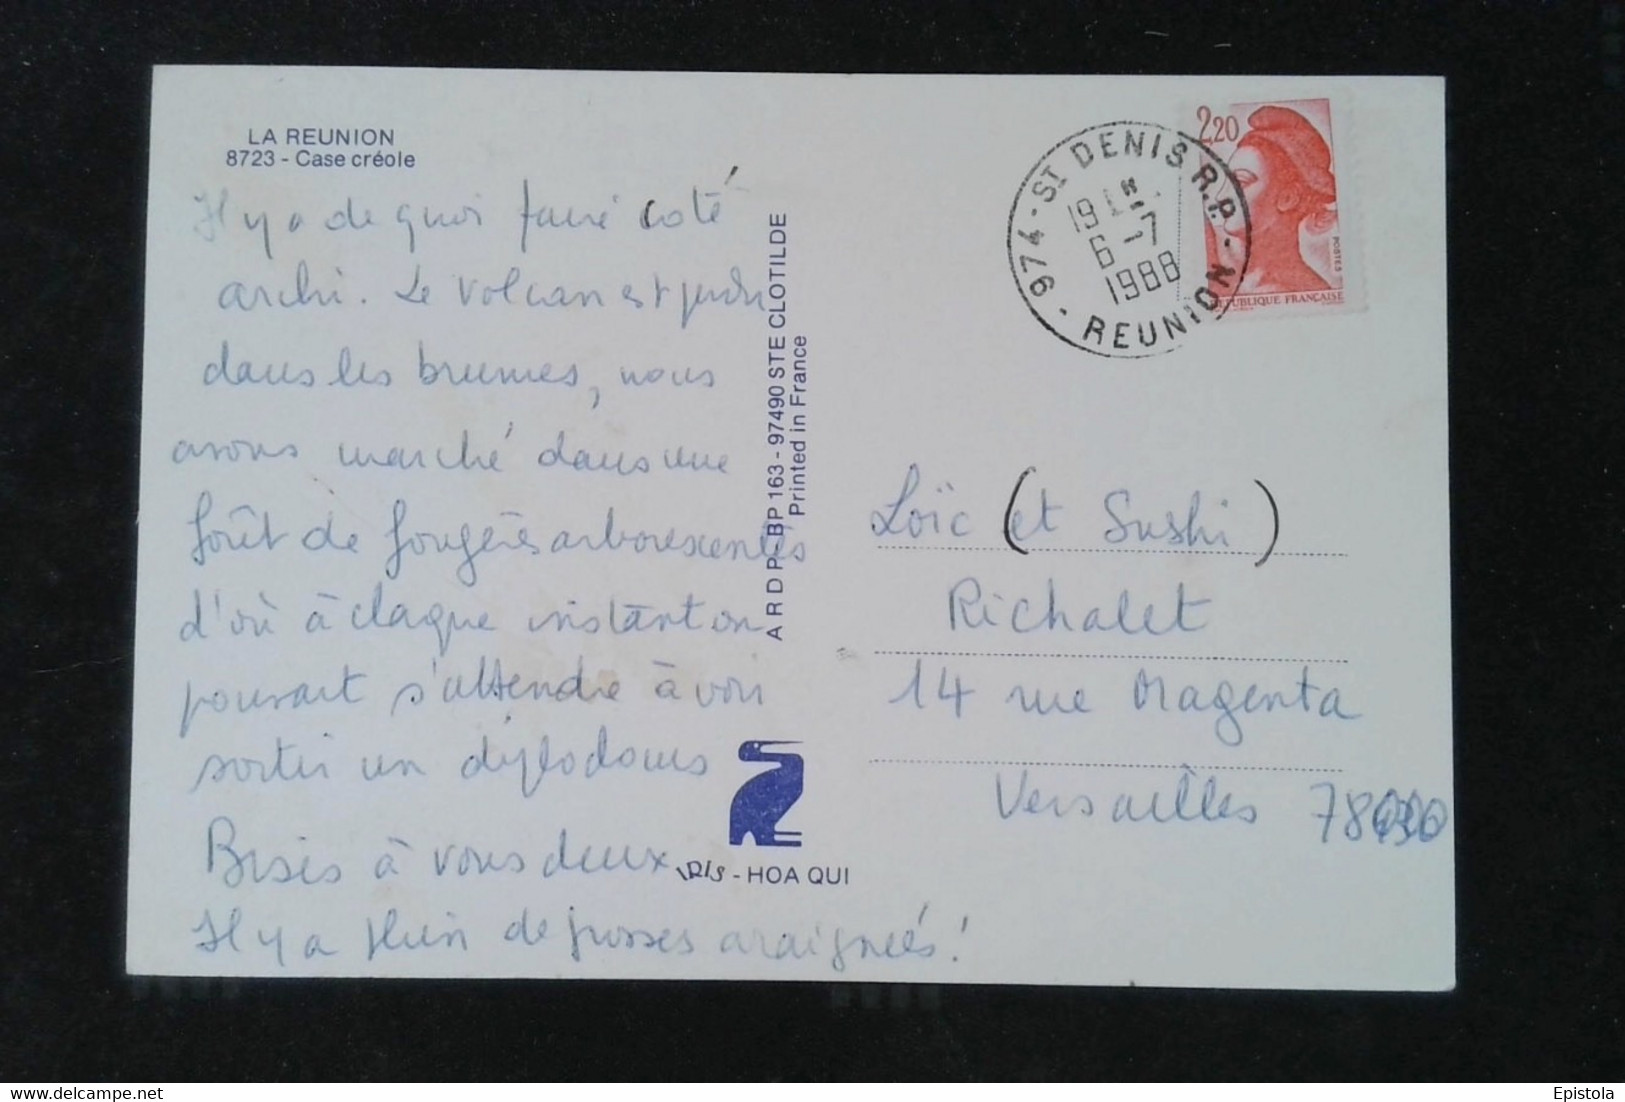 LA REUNION
8723 - Case créole
Il y a de quoi faire coté
archi. Le volcan est perdu
dans les brumes, nous
avons marché dans une
forêt de fougères arborescentes
d'où à chaque instant on
pourrait s'attendre à voir
sortir un diplodocus
Bises à vous deux
Il y a plein de grosses araignées !
A R D P - BP 163 - 97490 STE CLOTILDE
Printed in France
IRIS - HOA QUI
974 - ST DENIS R.P. - REUNION -
19 H
6 - 7
1988
2,20
POSTES
REPUBLIQUE FRANÇAISE
Loïc (et Sushi)
Richalet
14 rue Magenta
Versailles 78000
Delcampe.net
Epistola